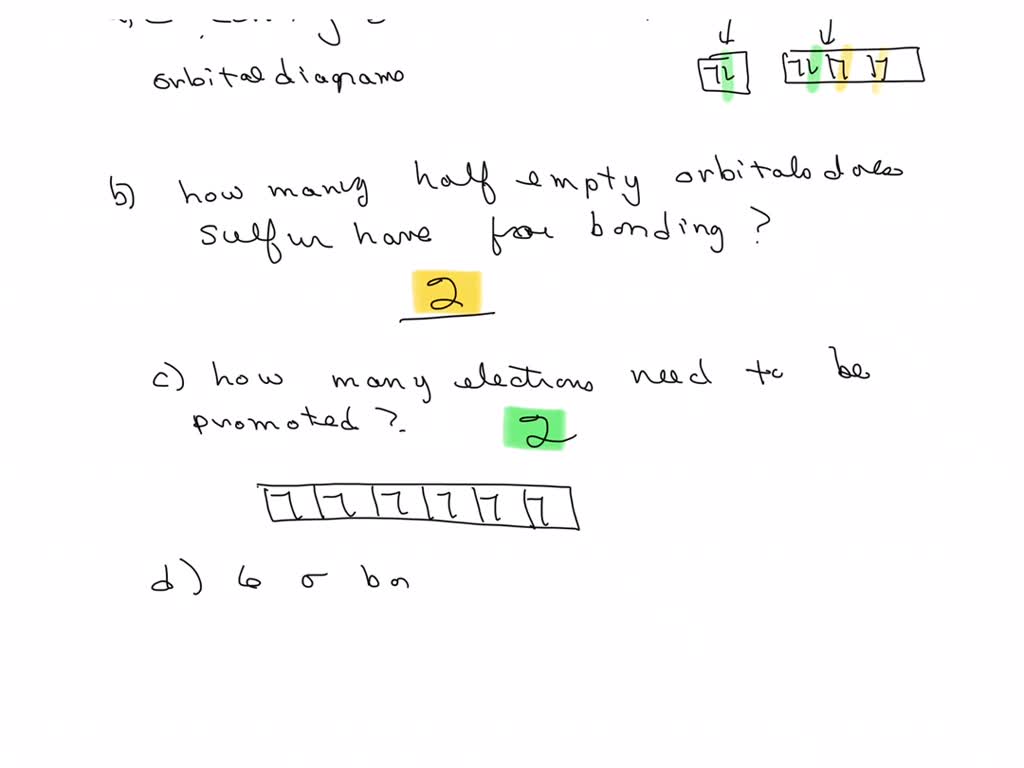 orbital diagrams
b) how many half empty orbitals does
sulfur have for bonding?
2
c) how many electrons need to be
promoted?. 2
d) 6 σ bo